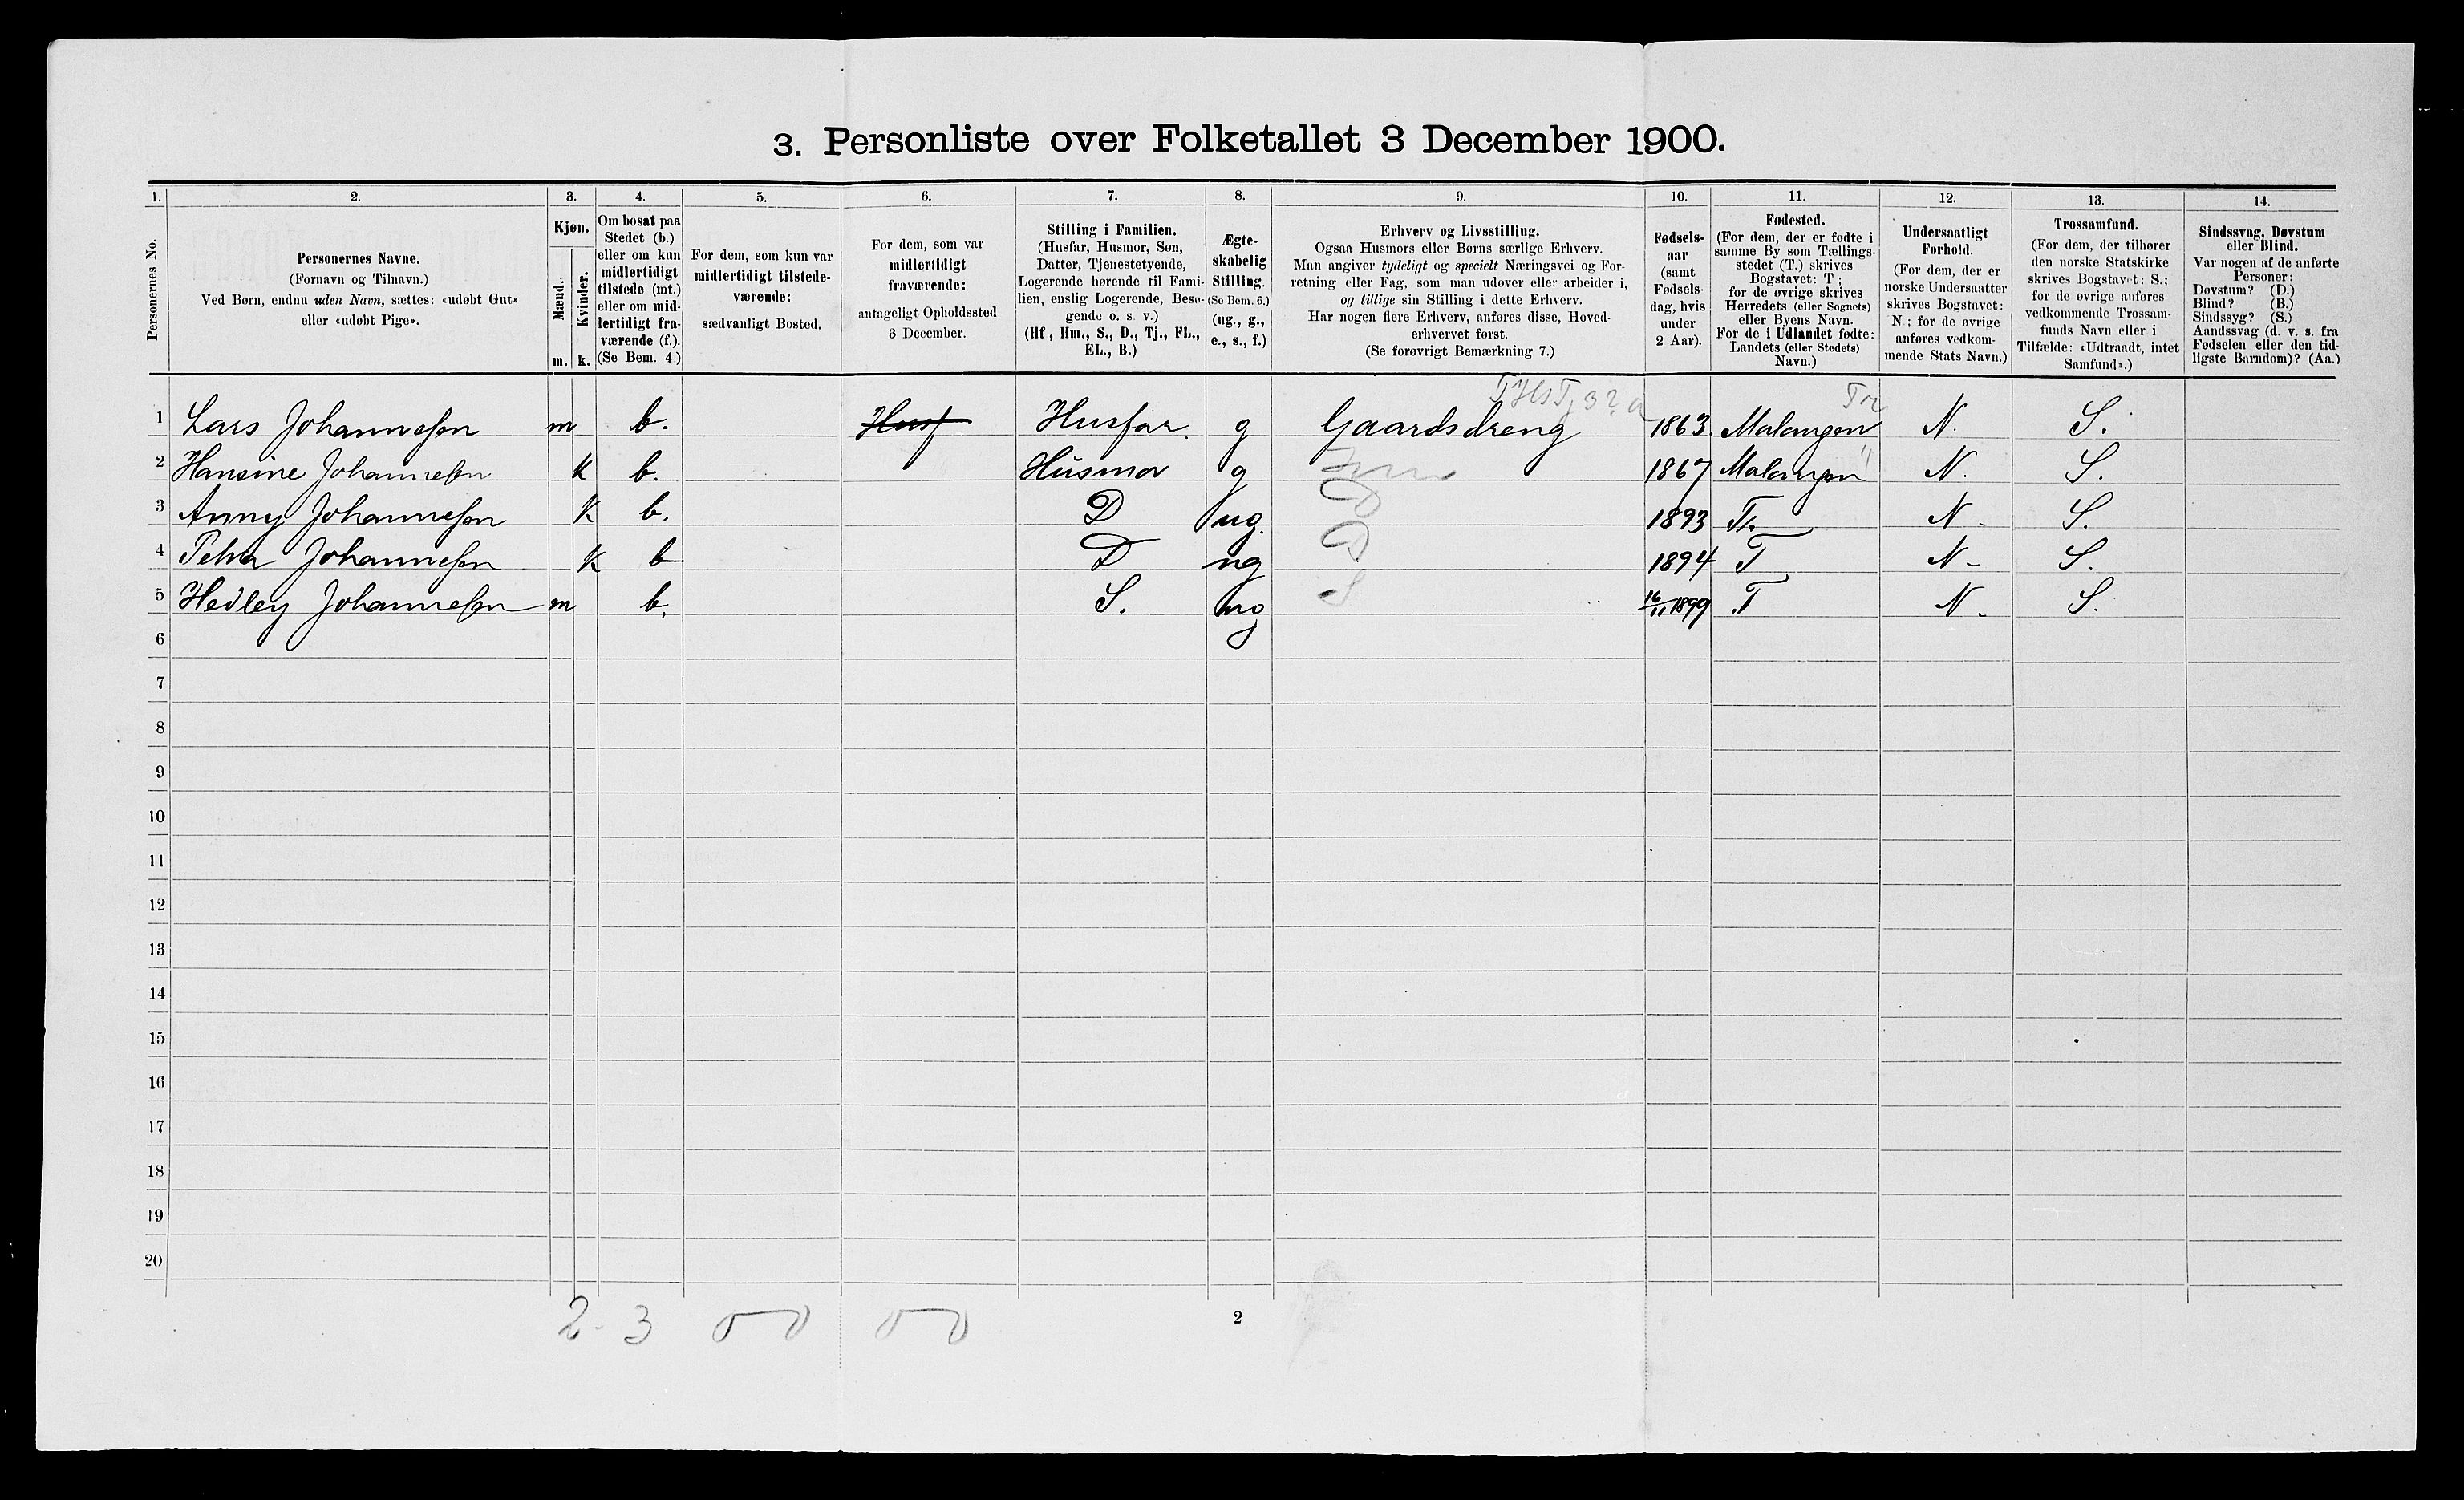 3. Personliste over Folketallet 3 December 1900.
1. 2. 3. 4. 5. 6. 7. 8. 9. 10. 11. 12. 13. 14.
Personernes No.
Personernes Navne.
(Fornavn og Tilnavn.)
Ved Børn, endnu uden Navn, sættes: «udøbt Gut»
eller «udøbt Pige».
Kjøn.
Mænd.
Kvinder.
m. k.
Om bosat paa
Stedet (b.)
eller om kun
midlertidigt
tilstede (mt.)
eller om mid-
lertidigt fra-
værende (f.).
(Se Bem. 4)
For dem, som kun var
midlertidigt tilstede-
værende:
sædvanligt Bosted.
For dem, som var
midlertidigt
fraværende:
antageligt Opholdssted
3 December.
Stilling i Familien.
(Husfar, Husmor, Søn,
Datter, Tjenestetyende,
Logerende hørende til Fami-
lien, enslig Logerende, Besø-
gende o. s. v.)
(Hf, Hm., S., D., Tj., FL.,
EL., B.)
Ægte-
skabelig
Stilling.
(Se Bem. 6.)
(ug., g.,
e., s., f.)
Erhverv og Livsstilling.
Ogsaa Husmors eller Børns særlige Erhverv.
Man angiver tydeligt og specielt Næringsvei og For-
retning eller Fag, som man udover eller arbeider i,
og tillige sin Stilling i dette Erhverv.
Har nogen flere Erhverv, anføres disse, Hoved-
erhvervet først.
(Se forøvrigt Bemærkning 7.)
Fødsels-
aar
(samt
Fødsels-
dag, hvis
under
2 Aar).
Fødested.
(For dem, der er fødte i
samme By som Tællings-
stedet (T.) skrives
Bogstavet: T;
for de øvrige skrives
Herredets (eller Sognets)
eller Byens Navn.
For de i Udlandet fødte:
Landets (eller Stedets)
Navn.)
Undersaatligt
Forhold.
(For dem, der er
norske Undersaatter
skrives Bogstavet:
N.; for de øvrige
anføres vedkom-
mende Stats Navn.)
Trossamfund.
(For dem, der tilhører
den norske Statskirke
skrives Bogstavet: S.;
for de øvrige anføres
vedkommende Trossam-
funds Navn eller i
Tilfælde: «Udtraadt, intet
Samfund».)
Sindssvag, Døvstum
eller Blind.
Var nogen af de anførte
Personer:
Døvstum? (D.)
Blind? (B.)
Sindssyg? (S.)
Aandssvag (d. v. s. fra
Fødselen eller den tid-
ligste Barndom)? (Aa.)
Tr
1 Lars Johannesen m b. Husf Husfar. g Gaardsdreng 1863. Malangen N. S.
2 Hansine Johannesen K b. Husmor g 1867 Malangen " N. S.
3 Anny Johannesen K b. D ug. D 1893 Tr. N- S.
4 Petra Johannesen K b D ug D 1894 T N- S.
5 Hedley Johannesen m b. S. ug S 16/11 1899 T N- S.
6
7
8
9
10
11
12
13
14
15
16
17
18
19
20
2 - 3 0 0 0 0
2